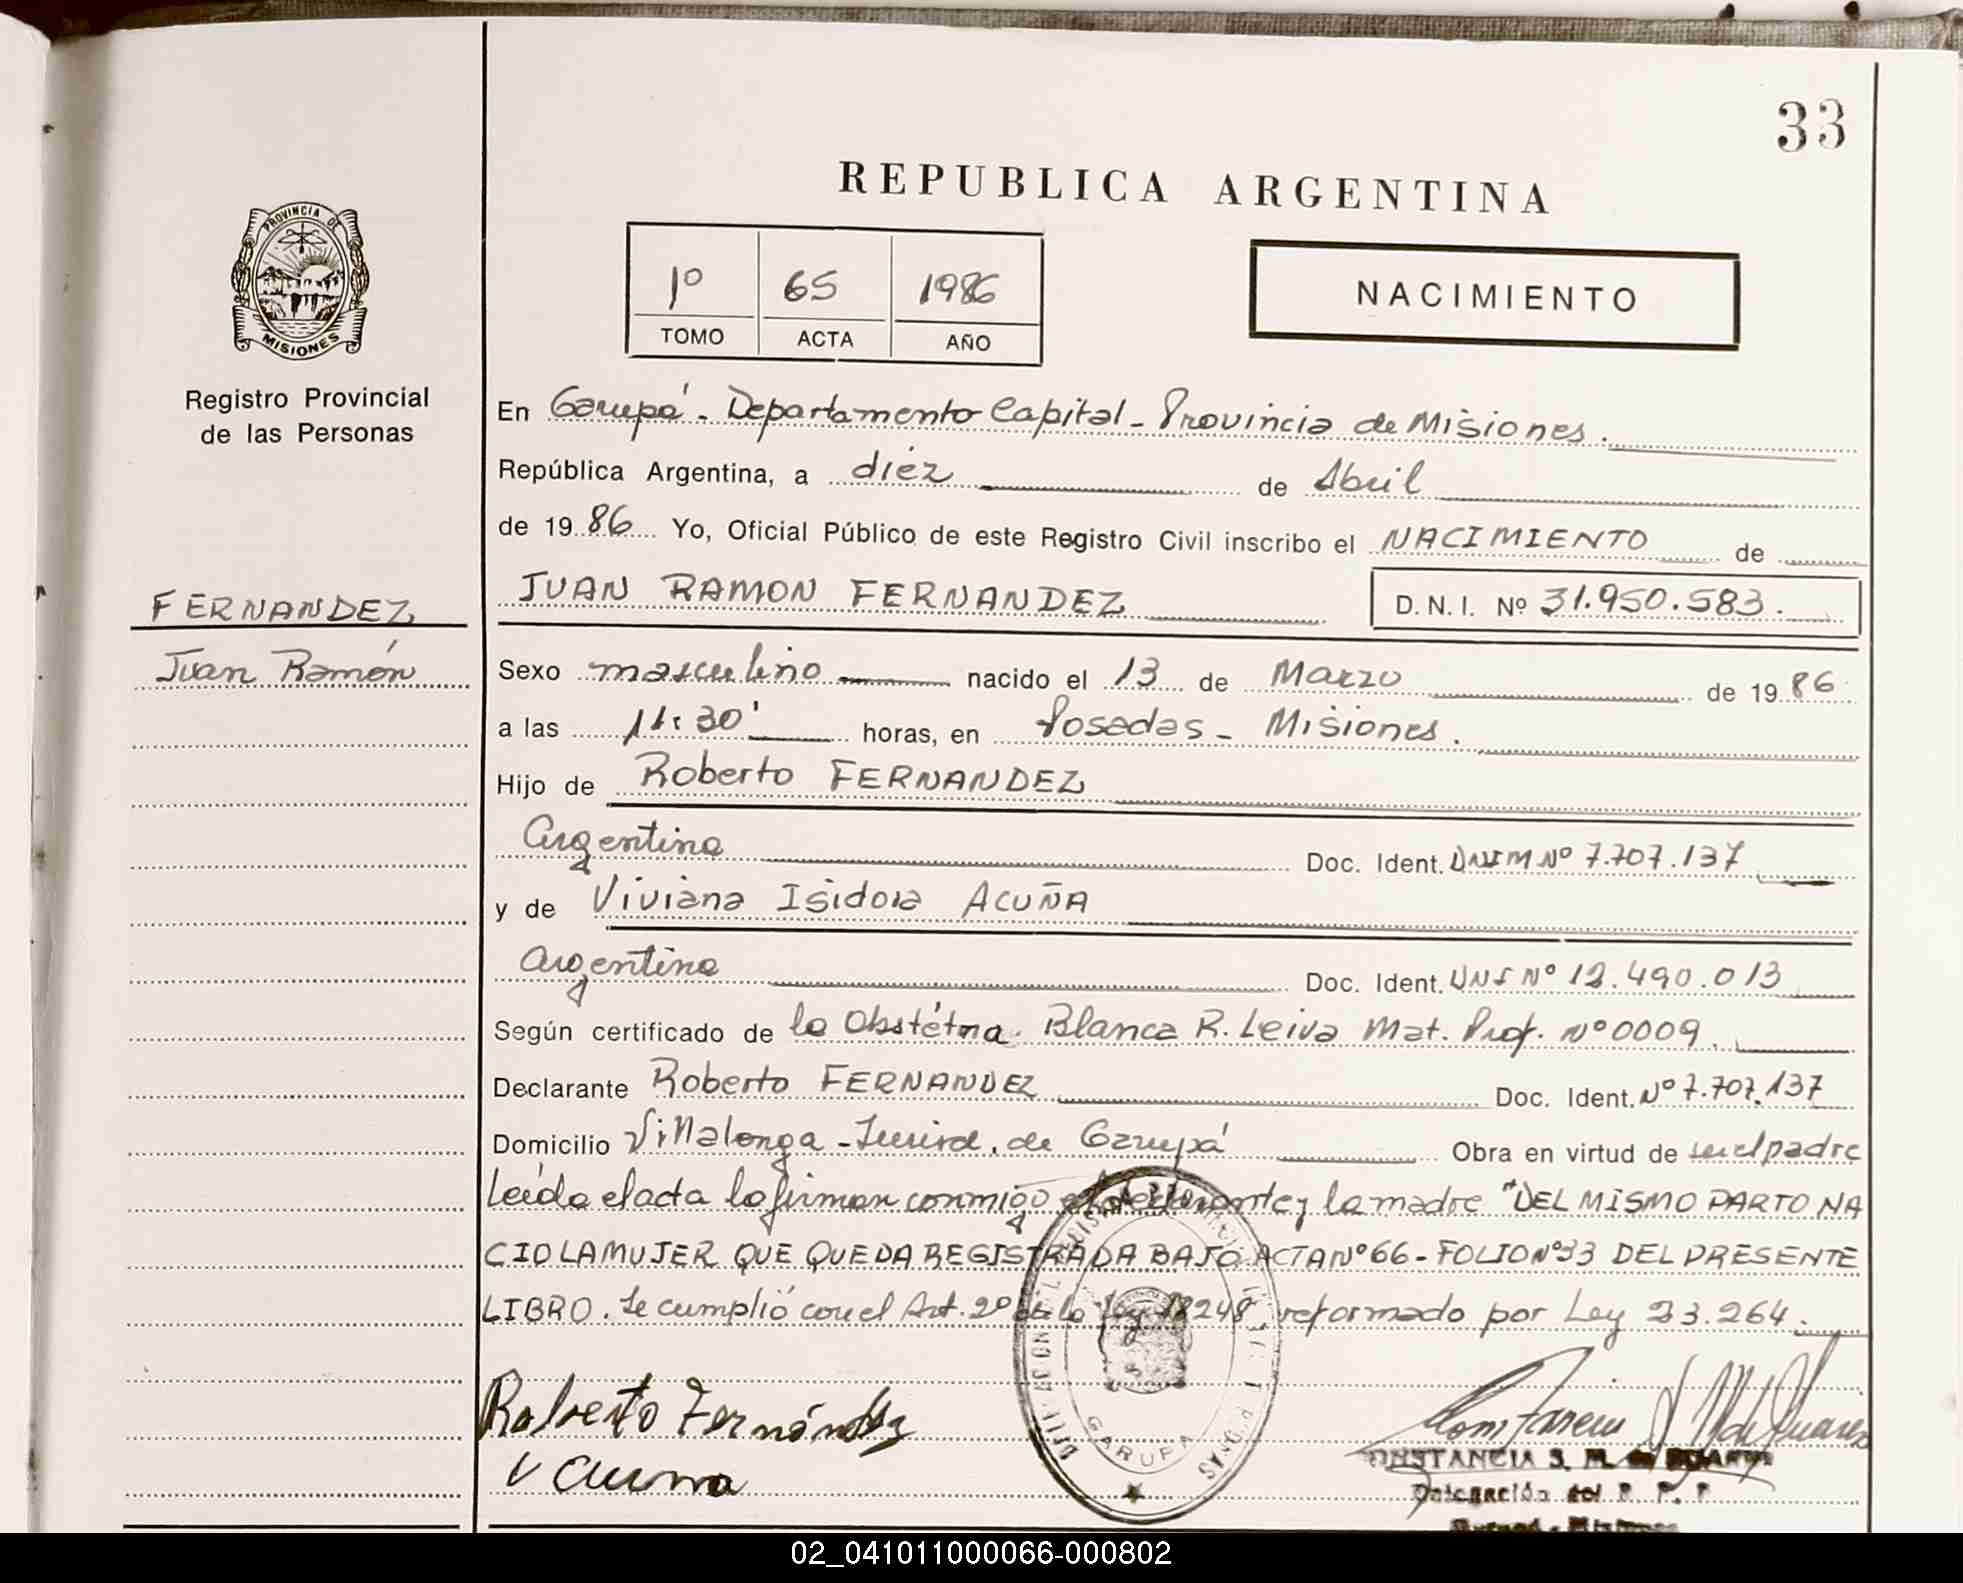 33
REPUBLICA ARGENTINA
PROVINCIA DE
MISIONES
1º 65 1986
TOMO ACTA AÑO
NACIMIENTO
Registro Provincial
de las Personas
FERNANDEZ
Juan Ramón
En Garupá - Departamento Capital - Provincia de Misiones.
República Argentina, a diez de Abril
de 1986 Yo, Oficial Público de este Registro Civil inscribo el NACIMIENTO de
JUAN RAMON FERNANDEZ D.N.I. Nº 31.950.583.
Sexo masculino nacido el 13 de Marzo de 1986
a las 11:30' horas, en Posadas - Misiones.
Hijo de Roberto FERNANDEZ
Argentina Doc. Ident. DNIM Nº 7.707.137
y de Viviana Isidora ACUÑA
Argentina Doc. Ident. DNI Nº 12.490.013
Según certificado de la Obstétra. Blanca R. Leiva Mat. Prof. Nº 0009.
Declarante Roberto FERNANDEZ Doc. Ident. Nº 7.707.137
Domicilio Villalonga - Jurisd. de Garupá Obra en virtud de ser el padre
Leída el acta la firman conmigo el declarante y la madre "DEL MISMO PARTO NA
CIO LA MUJER QUE QUEDA REGISTRADA BAJO ACTA Nº 66 - FOLIO Nº 33 DEL PRESENTE
LIBRO. Se cumplió con el Art. 2º de la Ley 18248, reformado por Ley 23.264.
Roberto Fernández
V Acuña
GARUPA
CONSTANCIA S. M. de DUARTE
Delegación del R. P. P.
Garupá - Misiones
02_041011000066-000802